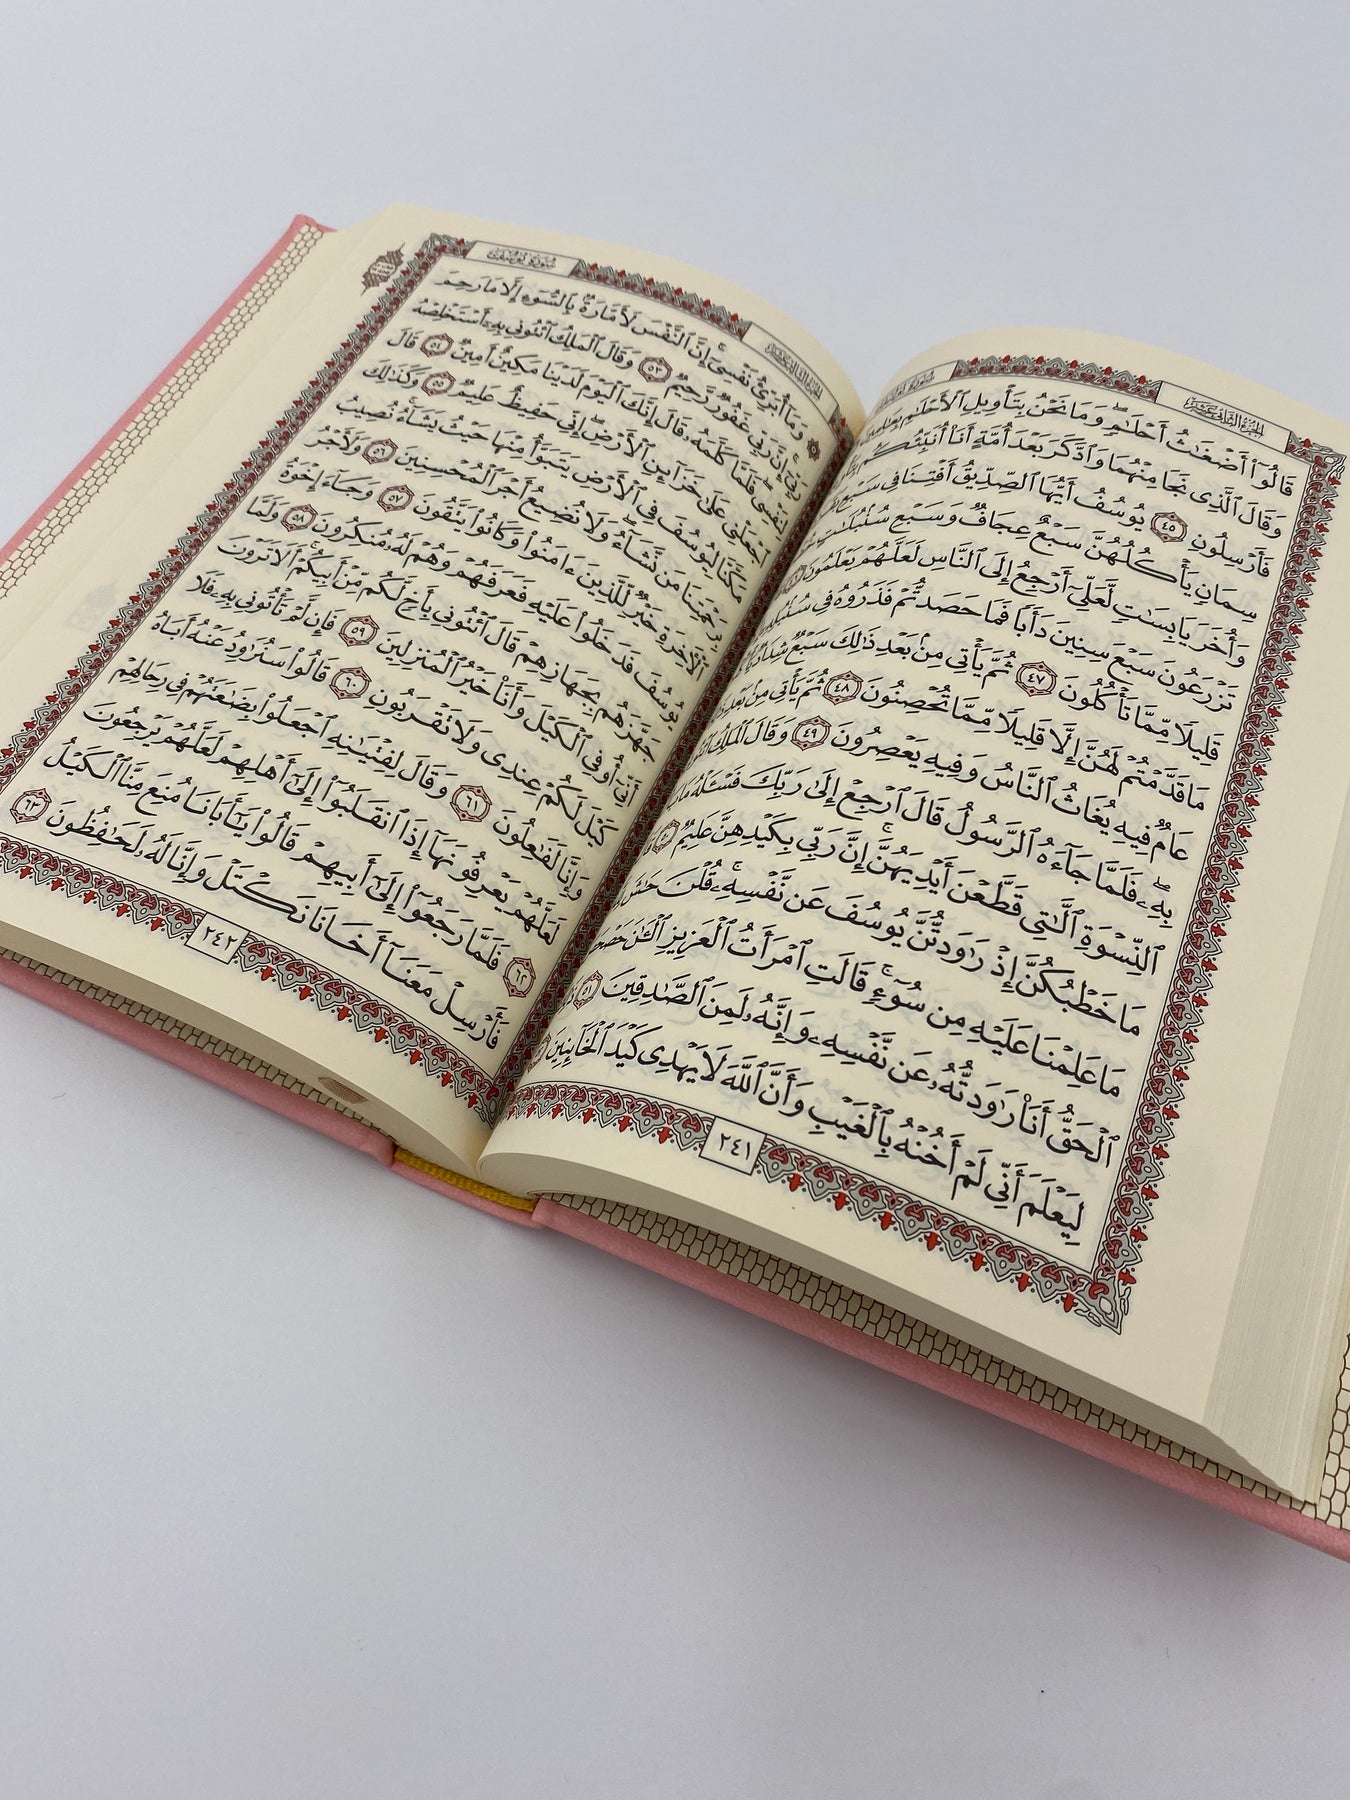 سُورَةُ يُوسُفَ
الجُزْءُ الثَّانِي عَشَرَ
قَالُوٓا۟ أَضْغَٰثُ أَحْلَٰمٍۢ ۖ وَمَا نَحْنُ بِتَأْوِيلِ ٱلْأَحْلَٰمِ بِعَٰلِمِينَ
وَقَالَ ٱلَّذِى نَجَا مِنْهُمَا وَٱدَّكَرَ بَعْدَ أُمَّةٍ أَنَا۠ أُنَبِّئُكُم
فَأَرْسِلُونِ ٤٥ يُوسُفُ أَيُّهَا ٱلصِّدِّيقُ أَفْتِنَا فِى سَبْعِ
سِمَانٍۢ يَأْكُلُهُنَّ سَبْعٌ عِجَافٌۭ وَسَبْعِ سُنۢبُلَٰتٍ
وَأُخَرَ يَابِسَٰتٍۢ لَّعَلِّىٓ أَرْجِعُ إِلَى ٱلنَّاسِ لَعَلَّهُمْ يَعْلَمُونَ
تَزْرَعُونَ سَبْعَ سِنِينَ دَأَبًۭا فَمَا حَصَدتُّمْ فَذَرُوهُ فِى
قَلِيلًۭا مِّمَّا تَأْكُلُونَ ٤٧ ثُمَّ يَأْتِى مِنۢ بَعْدِ ذَٰلِكَ سَبْعٌۭ شِدَادٌۭ
مَا قَدَّمْتُمْ لَهُنَّ إِلَّا قَلِيلًۭا مِّمَّا تُحْصِنُونَ ٤٨ ثُمَّ يَأْتِى مِنۢ بَعْدِ
عَامٌۭ فِيهِ يُغَاثُ ٱلنَّاسُ وَفِيهِ يَعْصِرُونَ ٤٩ وَقَالَ ٱلْمَلِكُ
بِهِۦ ۖ فَلَمَّا جَآءَهُ ٱلرَّسُولُ قَالَ ٱرْجِعْ إِلَىٰ رَبِّكَ فَسْـَٔلْهُ مَا
ٱلنِّسْوَةِ ٱلَّٰتِى قَطَّعْنَ أَيْدِيَهُنَّ ۚ إِنَّ رَبِّى بِكَيْدِهِنَّ عَلِيمٌۭ ٥٠
مَا خَطْبُكُنَّ إِذْ رَٰوَدتُّنَّ يُوسُفَ عَن نَّفْسِهِۦ ۚ قُلْنَ حَٰشَ
مَا عَلِمْنَا عَلَيْهِ مِن سُوٓءٍۢ ۚ قَالَتِ ٱمْرَأَتُ ٱلْعَزِيزِ ٱلْـَٰٔنَ
ٱلْحَقُّ أَنَا۠ رَٰوَدتُّهُۥ عَن نَّفْسِهِۦ وَإِنَّهُۥ لَمِنَ ٱلصَّٰدِقِينَ ٥١
لِيَعْلَمَ أَنِّى لَمْ أَخُنْهُ بِٱلْغَيْبِ وَأَنَّ ٱللَّهَ لَا يَهْدِى كَيْدَ ٱلْخَآئِنِينَ
٢٤١
سُورَةُ يُوسُفَ
وَمَآ أُبَرِّئُ نَفْسِىٓ ۚ إِنَّ ٱلنَّفْسَ لَأَمَّارَةٌۢ بِٱلسُّوٓءِ إِلَّا مَا رَحِمَ
رَبِّىٓ ۚ إِنَّ رَبِّى غَفُورٌۭ رَّحِيمٌۭ ٥٣ وَقَالَ ٱلْمَلِكُ ٱئْتُونِى بِهِۦٓ أَسْتَخْلِصْهُ
لِنَفْسِى ۖ فَلَمَّا كَلَّمَهُۥ قَالَ إِنَّكَ ٱلْيَوْمَ لَدَيْنَا مَكِينٌ أَمِينٌۭ ٥٤ قَالَ
ٱجْعَلْنِى عَلَىٰ خَزَآئِنِ ٱلْأَرْضِ ۖ إِنِّى حَفِيظٌ عَلِيمٌۭ ٥٥ وَكَذَٰلِكَ
مَكَّنَّا لِيُوسُفَ فِى ٱلْأَرْضِ يَتَبَوَّأُ مِنْهَا حَيْثُ يَشَآءُ ۚ نُصِيبُ
بِرَحْمَتِنَا مَن نَّشَآءُ ۖ وَلَا نُضِيعُ أَجْرَ ٱلْمُحْسِنِينَ ٥٦ وَلَأَجْرُ
ٱلْءَاخِرَةِ خَيْرٌۭ لِّلَّذِينَ ءَامَنُوا۟ وَكَانُوا۟ يَتَّقُونَ ٥٧ وَجَآءَ إِخْوَةُ
يُوسُفَ فَدَخَلُوا۟ عَلَيْهِ فَعَرَفَهُمْ وَهُمْ لَهُۥ مُنكِرُونَ ٥٨ وَلَمَّا
جَهَّزَهُم بِجَهَازِهِمْ قَالَ ٱئْتُونِى بِأَخٍۢ لَّكُم مِّنْ أَبِيكُمْ ۚ أَلَا تَرَوْنَ
أَنِّىٓ أُوفِى ٱلْكَيْلَ وَأَنَا۠ خَيْرُ ٱلْمُنزِلِينَ ٥٩ فَإِن لَّمْ تَأْتُونِى بِهِۦ فَلَا
كَيْلَ لَكُمْ عِندِى وَلَا تَقْرَبُونِ ٦٠ قَالُوا۟ سَنُرَٰوِدُ عَنْهُ أَبَاهُ
وَإِنَّا لَفَٰعِلُونَ ٦١ وَقَالَ لِفِتْيَٰنِهِ ٱجْعَلُوا۟ بِضَٰعَتَهُمْ فِى رِحَالِهِمْ
لَعَلَّهُمْ يَعْرِفُونَهَآ إِذَا ٱنقَلَبُوٓا۟ إِلَىٰٓ أَهْلِهِمْ لَعَلَّهُمْ يَرْجِعُونَ
٦٢ فَلَمَّا رَجَعُوٓا۟ إِلَىٰٓ أَبِيهِمْ قَالُوا۟ يَٰٓأَبَانَا مُنِعَ مِنَّا ٱلْكَيْلُ
فَأَرْسِلْ مَعَنَآ أَخَانَا نَكْتَلْ وَإِنَّا لَهُۥ لَحَٰفِظُونَ ٦٣
٢٤٢